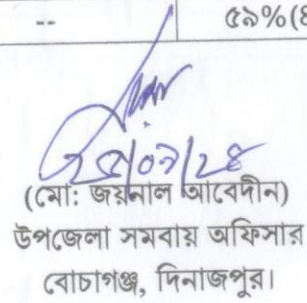 -- ৫৯%(৪
২৫/০৭/২৪
(মো: জয়নাল আবেদীন)
উপজেলা সমবায় অফিসার
বোচাগঞ্জ, দিনাজপুর।